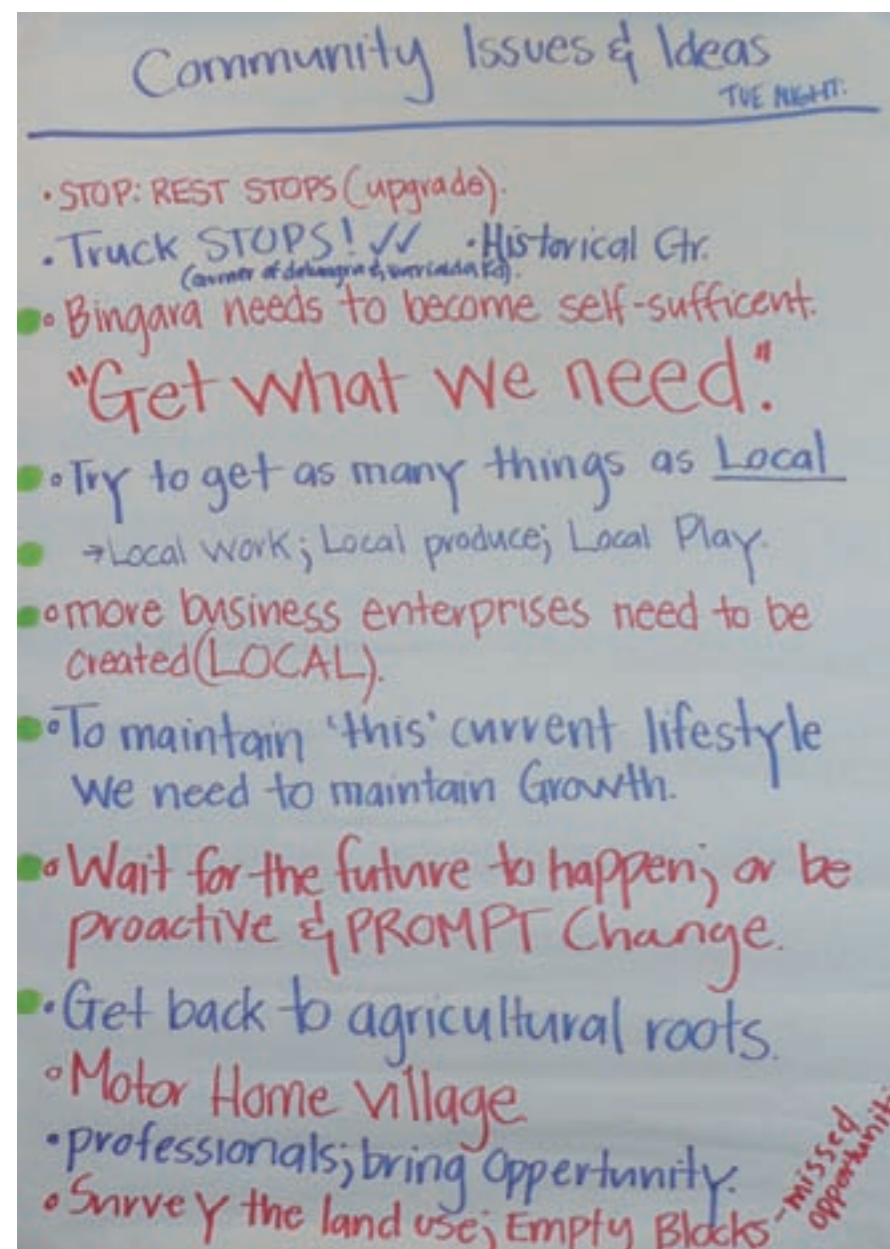 Community Issues & Ideas
TUE NIGHT.
• STOP: REST STOPS (upgrade).
• Truck STOPS! ✓✓ • Historical Ctr.
(corner of
• Bingara needs to become self-sufficent.
"Get what we need".
• Try to get as many things as Local
→ Local work; Local produce; Local Play.
• more business enterprises need to be
created (LOCAL).
• To maintain 'this' current lifestyle
we need to maintain Growth.
• Wait for the future to happen; or be
proactive & PROMPT Change.
• Get back to agricultural roots.
• Motor Home village
• professionals; bring Oppertunity.
• Survey the land use; Empty Blocks - missed